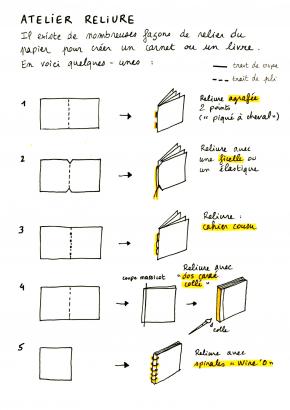 ATELIER RELIURE
Il existe de nombreuses façons de relier du
papier pour créer un carnet ou un livre.
En voici quelques-unes :
trait de coupe
trait de pli
1
Reliure agrafée
2 points
(« piqué à cheval »)
2
Reliure avec
une ficelle ou
un élastique
3
Reliure :
cahier cousu
4
coupe massicot
Reliure avec
"dos carré
collé"
colle
5
Reliure avec
spirales « Wire'O »